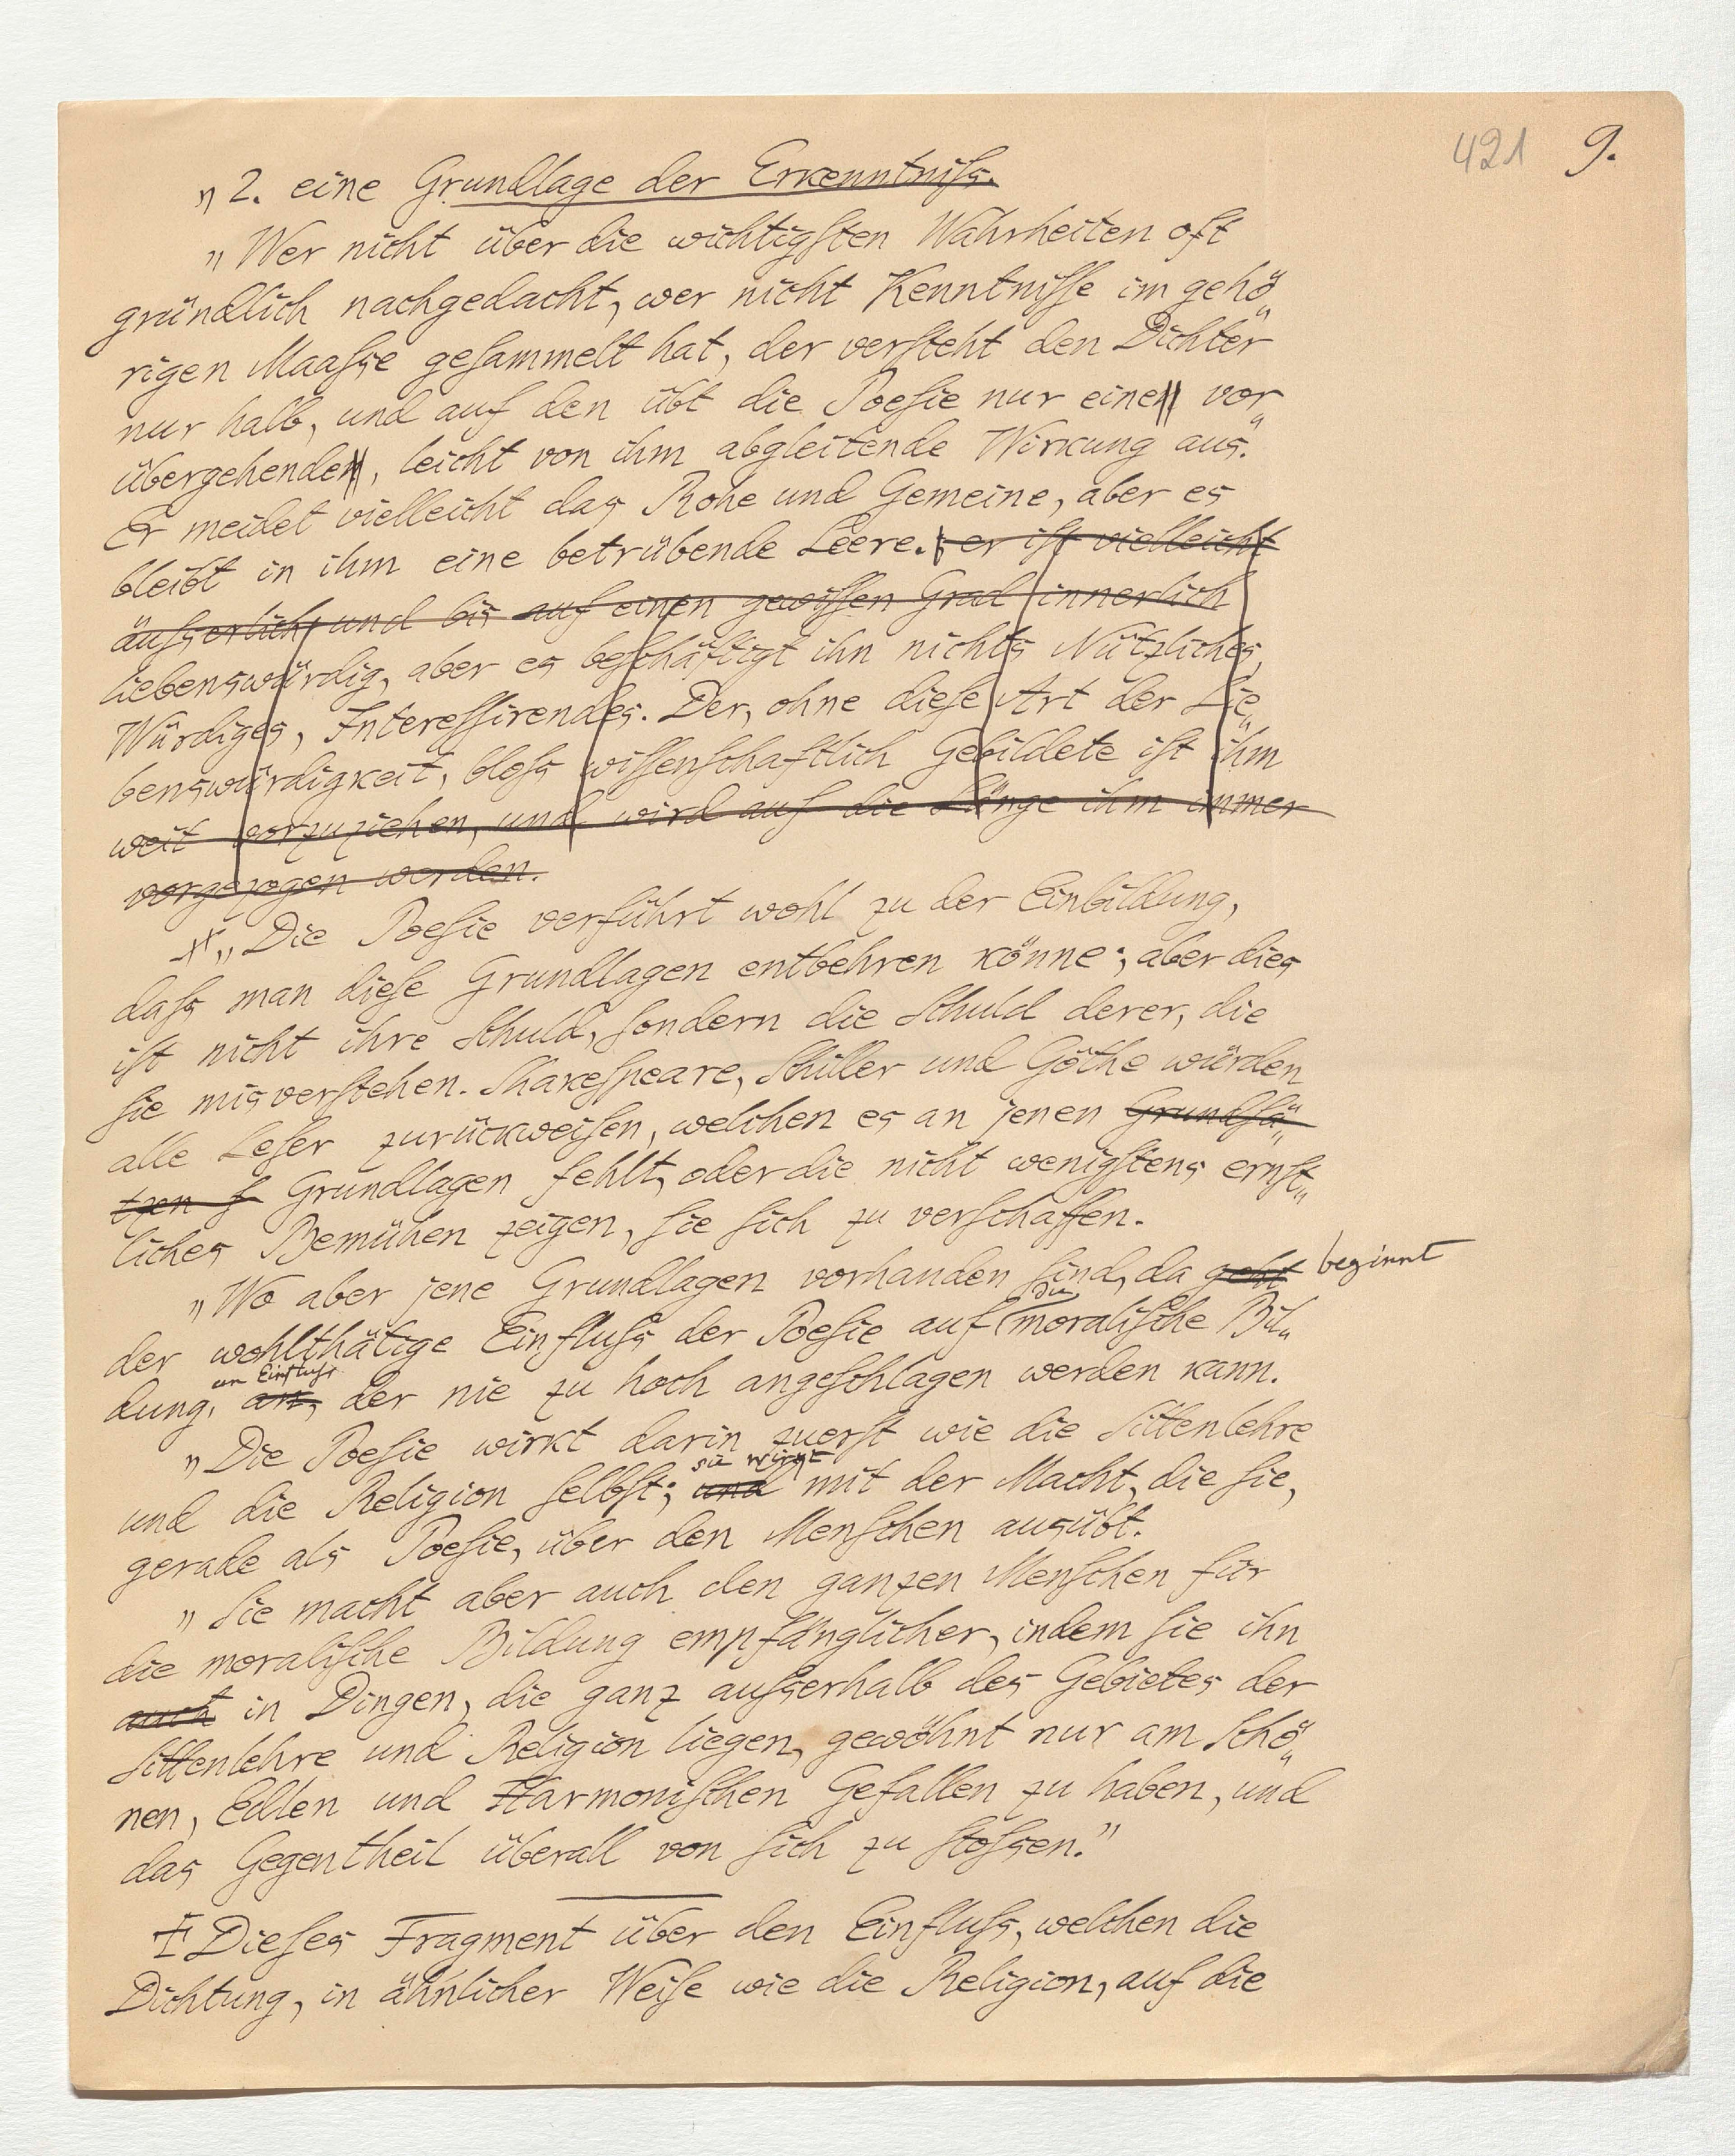 421 9.
„2. eine Grundlage der Erkenntniſs.
„Wer nicht über die wichtigſten Wahrheiten oft
gründlich nachgedacht, wer nicht Kenntniſſe im gehö„
rigen Maaſse geſammelt hat, der verſteht den Dichter
nur halb, und auf den übt die Poeſie nur eine vor„
übergehende, leicht von ihm abgleitende Wirkung aus.
Er meidet vielleicht das Rohe und Gemeine, aber es
bleibt in ihm eine betrübende Leere. er iſt vielleicht
äuſserlich und bis auf einen gewiſſen Grad innerlich
liebenswürdig, aber es beſchäftigt ihn nichts Nützliches,
Würdiges, Intereſſirendes. Der, ohne dieſe Art der Lie„
benswürdigkeit, bloſs wiſſenſchaftlich Gebildete iſt ihm
weit vorzuziehen, und wird auf die Länge ihm immer
vorgezogen werden.
„Die Poeſie verführt wohl zu der Einbildung,
daſs man dieſe Grundlagen entbehren könne; aber dies
iſt nicht ihre Schuld, ſondern die Schuld derer, die
ſie misverſtehen. Shakeſpeare, Schiller und Göthe würden
alle Leſer zurückweiſen, welchen es an jenen Grundſä„
tzen f Grundlagen fehlt, oder die nicht wenigſtens ernſt„
liches Bemühen zeigen, ſie ſich zu verſchaffen.
„Wo aber jene Grundlagen vorhanden ſind, da geht beginnt
die
der wohlthätige Einfluſs der Poeſie auf moraliſche Bil„
ein Einfluſs
dung, an, der nie zu hoch angeſchlagen werden kann.
„Die Poeſie wirkt darin zuerſt wie die Sittenlehre
sie wirkt
und die Religion ſelbſt; und mit der Macht, die ſie,
gerade als Poeſie, über den Menſchen ausübt.
„Sie macht aber auch den ganzen Menſchen für
die moraliſche Bildung empfänglicher, indem ſie ihn
auch in Dingen, die ganz auſserhalb des Gebietes der
Sittenlehre und Religion liegen, gewöhnt nur am Schö„
nen, Edlen und Harmoniſchen Gefallen zu haben, und
das Gegentheil überall von ſich zu ſtoſsen.”
Dieſes Fragment über den Einfluſs, welchen die
Dichtung, in ähnlicher Weiſe wie die Religion, auf die